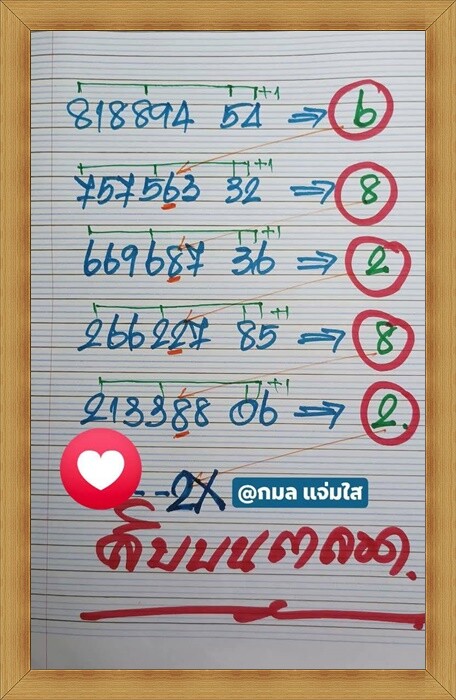 +1
818894 54 ⇒ 6
+1
757563 32 ⇒ 8
+1
669687 36 ⇒ 2
+1
266227 85 ⇒ 8
+1
213388 06 ⇒ 2.
--2X @กมล แจ่มใส
สิบบนตลอด.